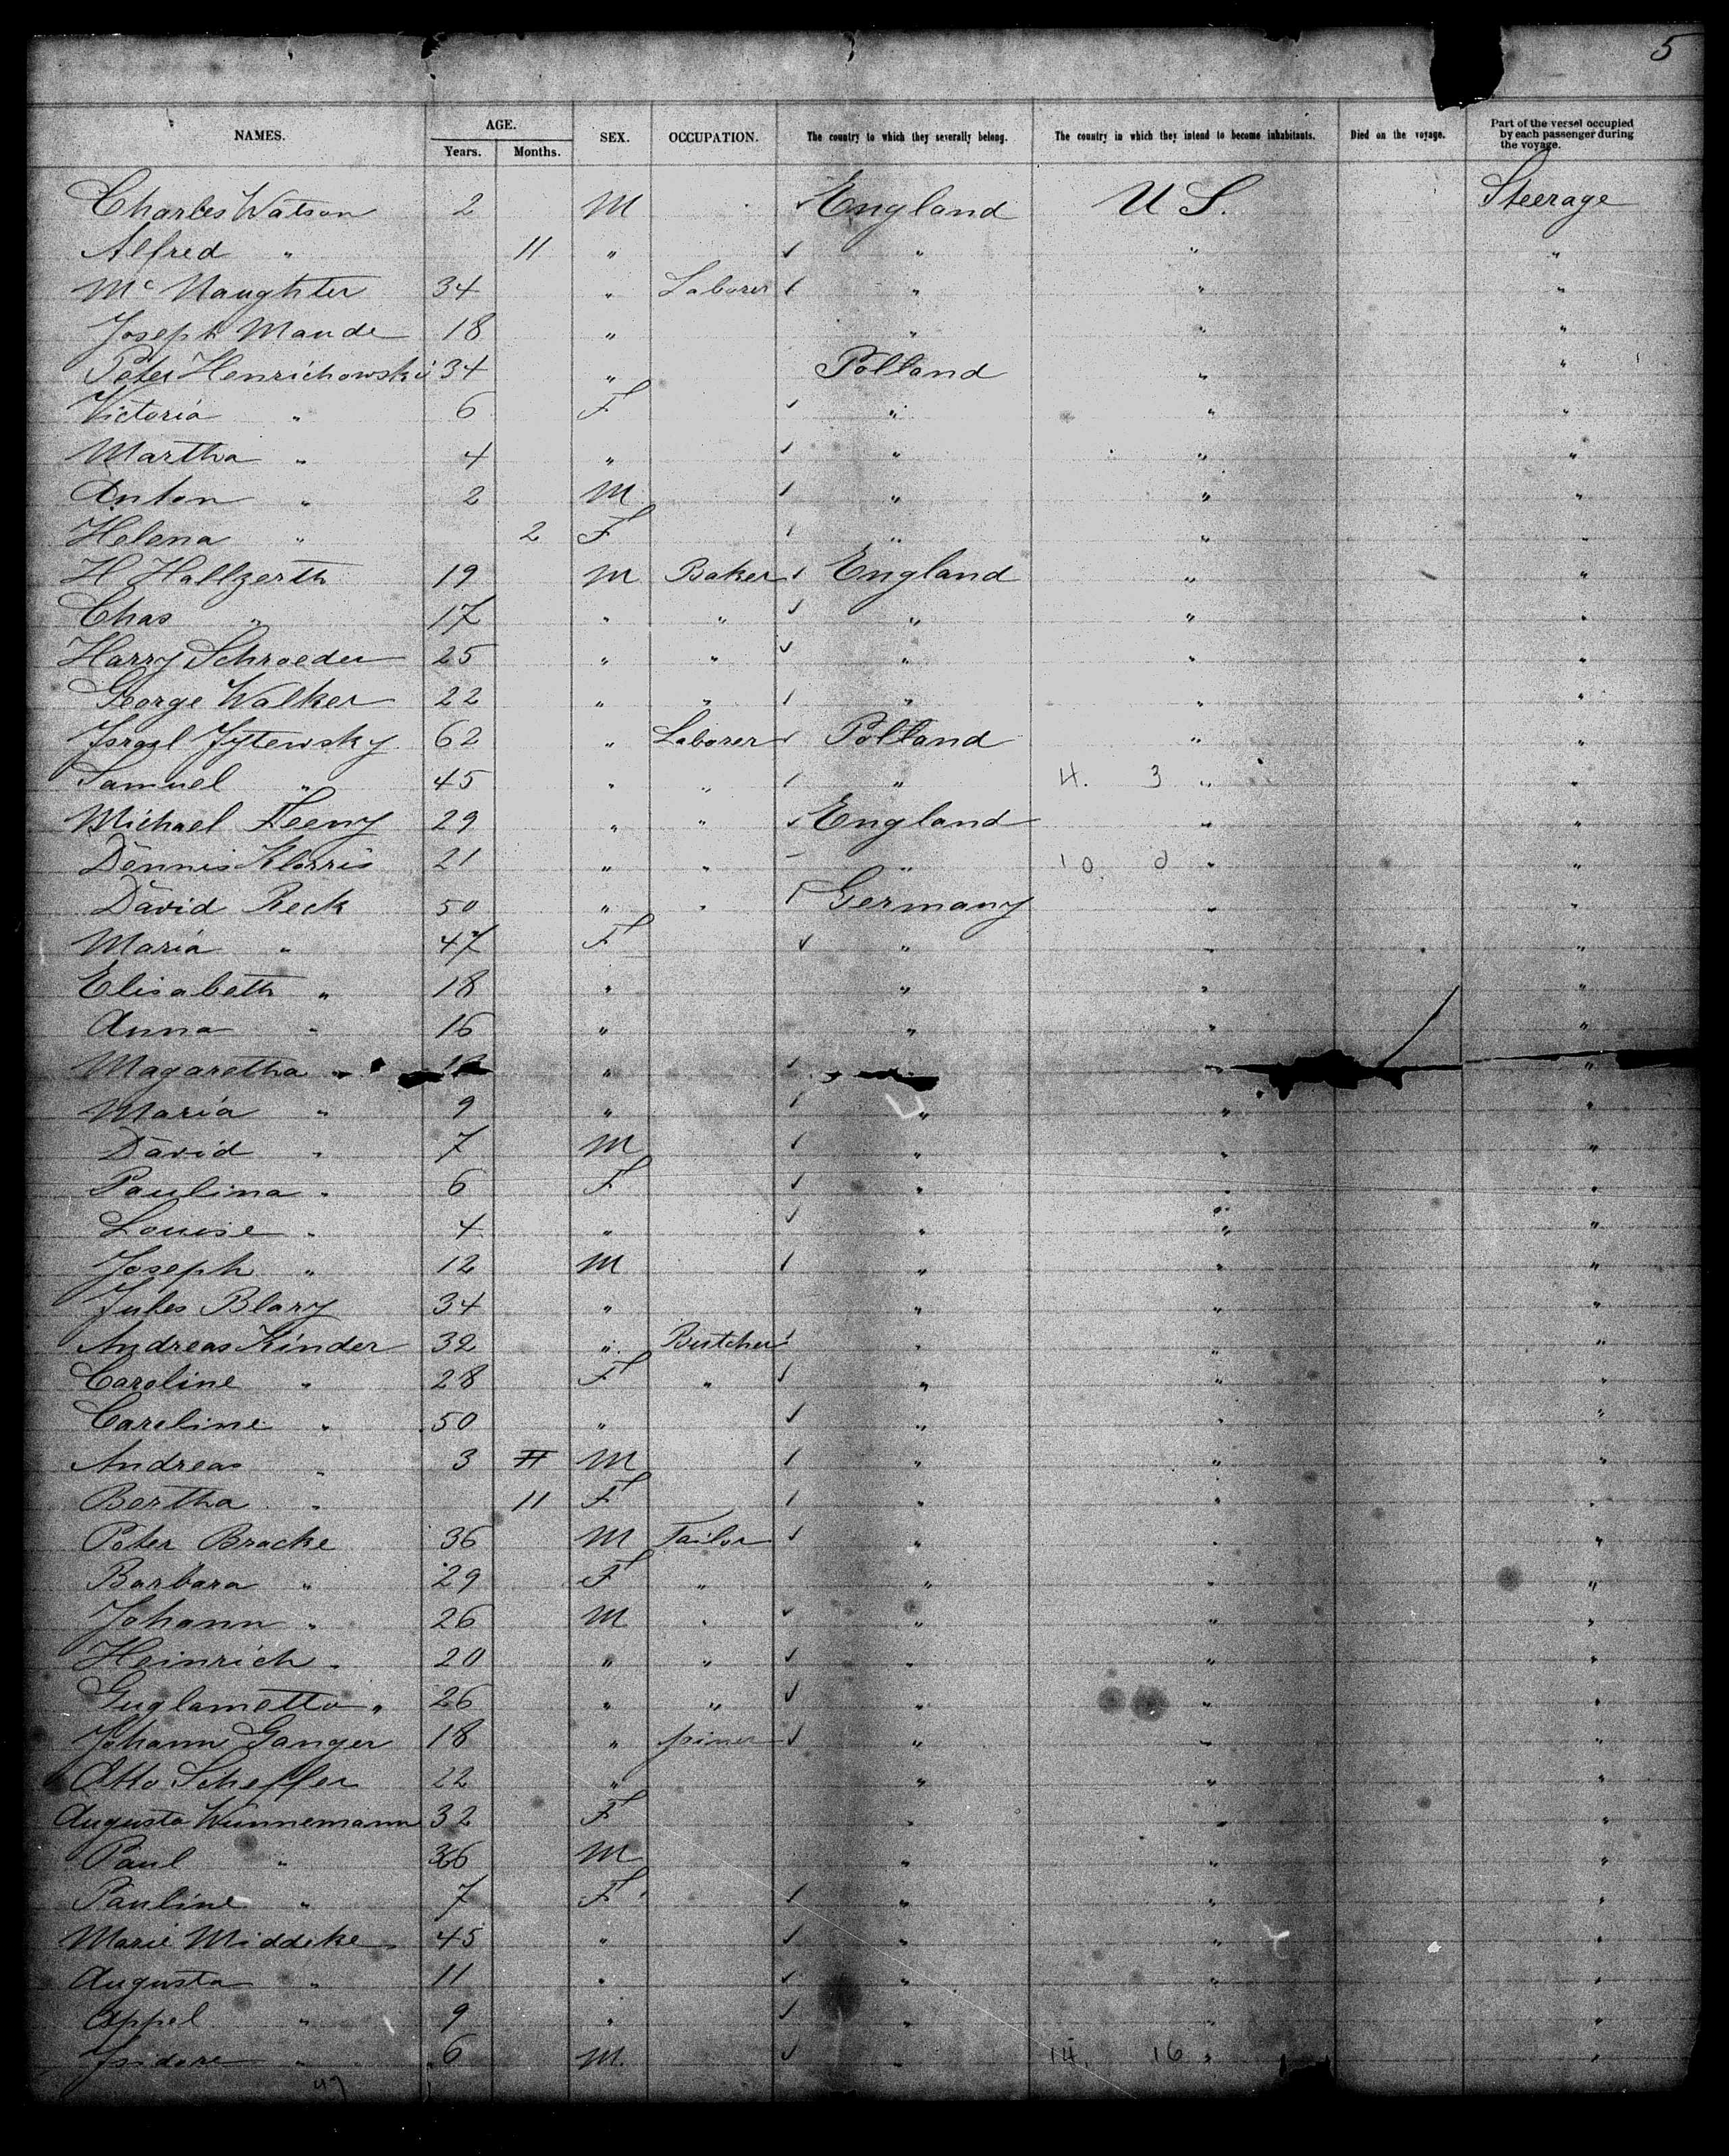 5
NAMES. AGE. Years. Months. SEX. OCCUPATION. The country to which they severally belong. The country in which they intend to become inhabitants. Died on the voyage. Part of the vessel occupied by each passenger during the voyage.
Charles Watson 2 M England U S. Steerage
Alfred " 11 " " " "
Mc Naughter 34 " Laborer " " "
Joseph Maude 18 " " " "
Peter Henrichowski 34 " Polland " "
Victoria " 6 F " " "
Martha " 4 " " " "
Anton " 2 M " " "
Helena " 2 F " " "
H Hallzerth 19 M Baker England " "
Chas " 17 " " " " "
Harry Schroeder 25 " " " " "
George Walker 22 " " " " "
Israel Jytewsky 62 " Laborer Polland " "
Samuel " 45 " " " 4. 3 " "
Michael Feeny 29 " " England " "
Dennis Klorris 21 " " " 10. 0 " "
David Reck 50 " " Germany " "
Maria " 47 F " " "
Elisabeth " 18 " " " "
Anna " 16 " " " "
Magaretha " " " "
Maria " 9 " " " "
David " 7 M " " "
Paulina " 6 F " " "
Louise " 4 " " " "
Joseph " 12 M " " "
Jules Blary 34 " " " "
Andreas Kinder 32 " Butcher " " "
Caroline " 28 F " " " "
Careline " 50 " " " "
Andreas " 3 11 M " " "
Bertha " 11 F " " "
Peter Bracke 36 M Tailor " " "
Barbara " 29 F " " " "
Johann " 26 M " " " "
Heinrich " 20 " " " " "
Guglametta " 26 " " " " "
Johann Ganger 18 " joiner " " "
Otto Scheffer 22 " " " "
Augusta Wunnemann 32 F " " "
Paul " 36 M " " "
Pauline " 7 F " " "
Marie Middeke 45 " " " "
Augusta " 11 " " " "
Appel " 9 " " " "
Isidore " 6 M " 14. 16 " "
47